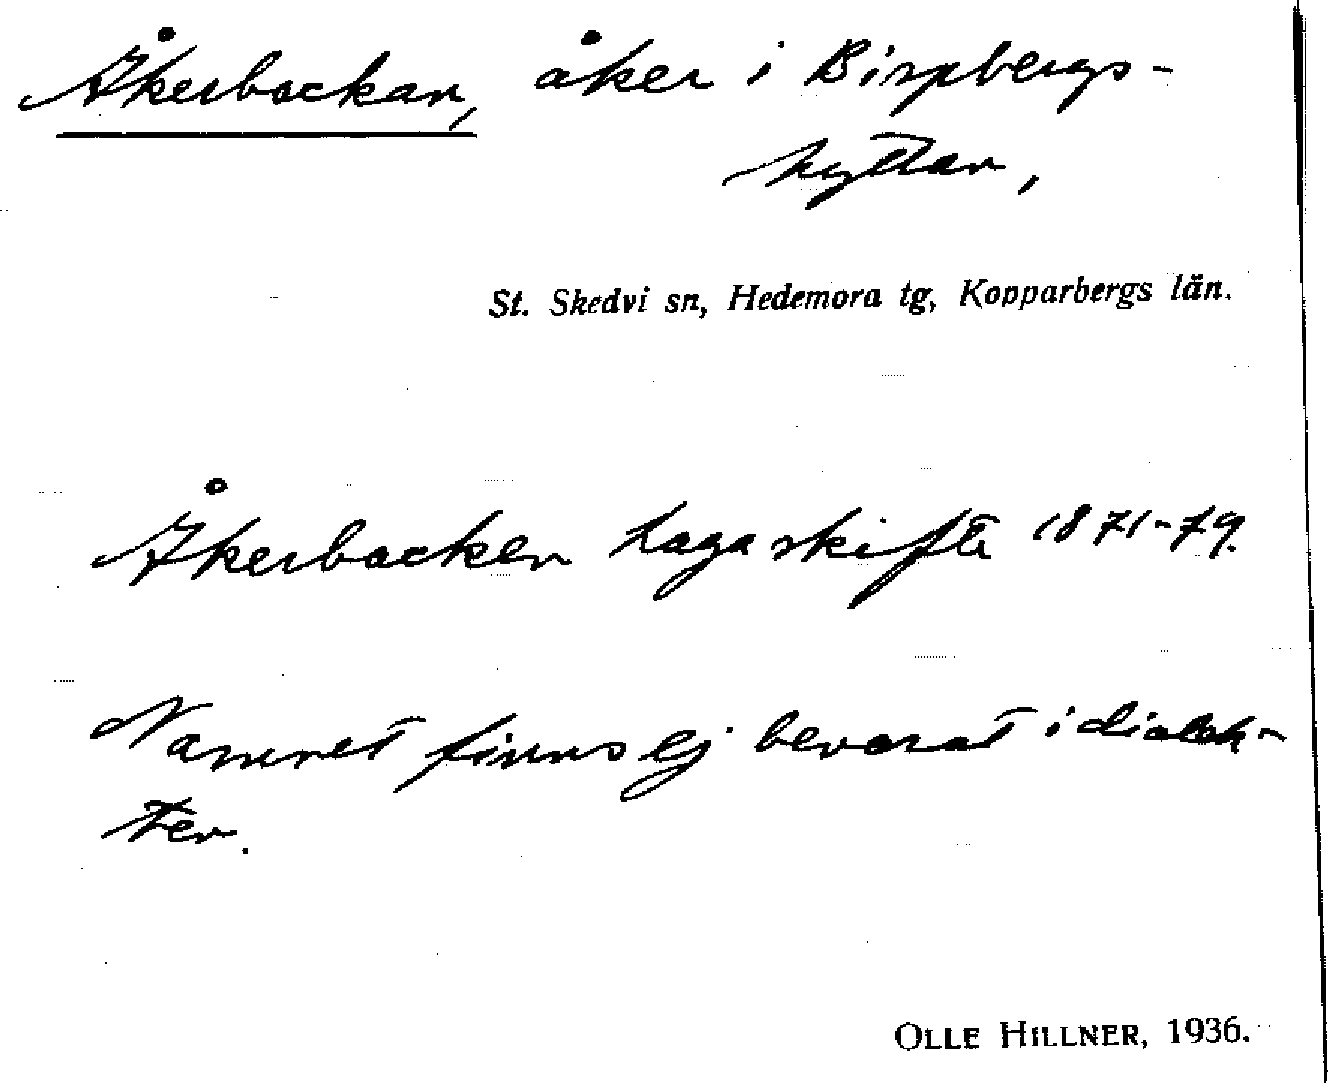 Åkerbackan, åker i Bispbergs-
hyttan,
St. Skedvi sn, Hedemora tg, Kopparbergs län.
Åkerbacken Laga skifte 1871-79.
Namnet finns ej bevarat i dialek-
ten.
OLLE HILLNER, 1936.